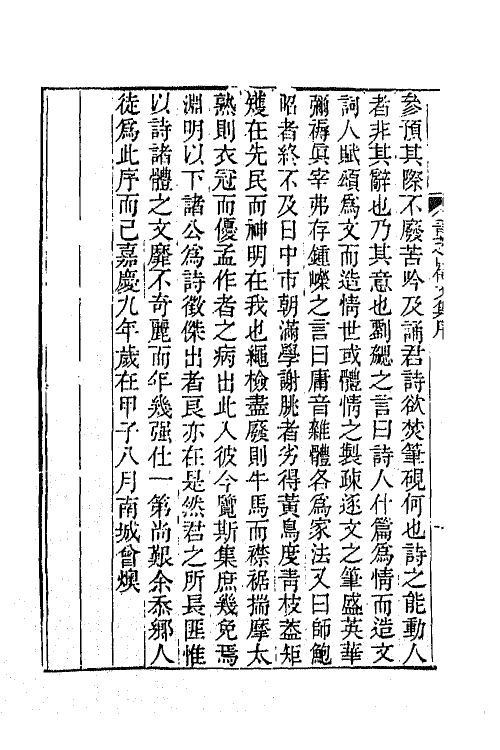 參預其際不廢苦吟及誦君詩欲焚筆硯何也詩之能動人
者非其辭也乃其意也劉勰之言曰詩人什篇爲情而造文
詞人賦頌爲文而造情世或體情之製疎逐文之筆盛英華
彌褥眞宰弗存鍾嶸之言曰庸音雜體各爲家法又曰師鮑
昭者終不及日中市朝滿學謝朓者劣得黃鳥度靑枝葢矩
矱在先民而神明在我也繩檢盡廢則牛馬而襟裾揣摩太
熟則衣冠而優孟作者之病出此入彼今覽斯集庶幾免焉
淵明以下諸公爲詩徵傑出者良亦在是然君之所長匪惟
以詩諸體之文靡不奇麗而年幾强仕一第尚艱余忝鄉人
徒爲此序而已嘉慶九年歲在甲子八月南城曾燠